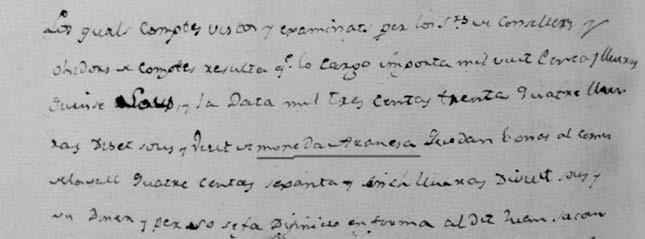 Los quals comptes vistos y examinats per los S.rs de Consellers y
ohidors de comptes resulta q.e lo cargo importa mil vuit Centas lliuras
quinse sous, y la Data mil tres centas trenta quatre lliu-
ras Diset sous y vuit de moneda Aranesa quedan bonas al comu
de la vall quatre centas sexanta y sinch lliuras Divuit sous y
un Diner y per so se fa Difinicio en forma al dit Juan